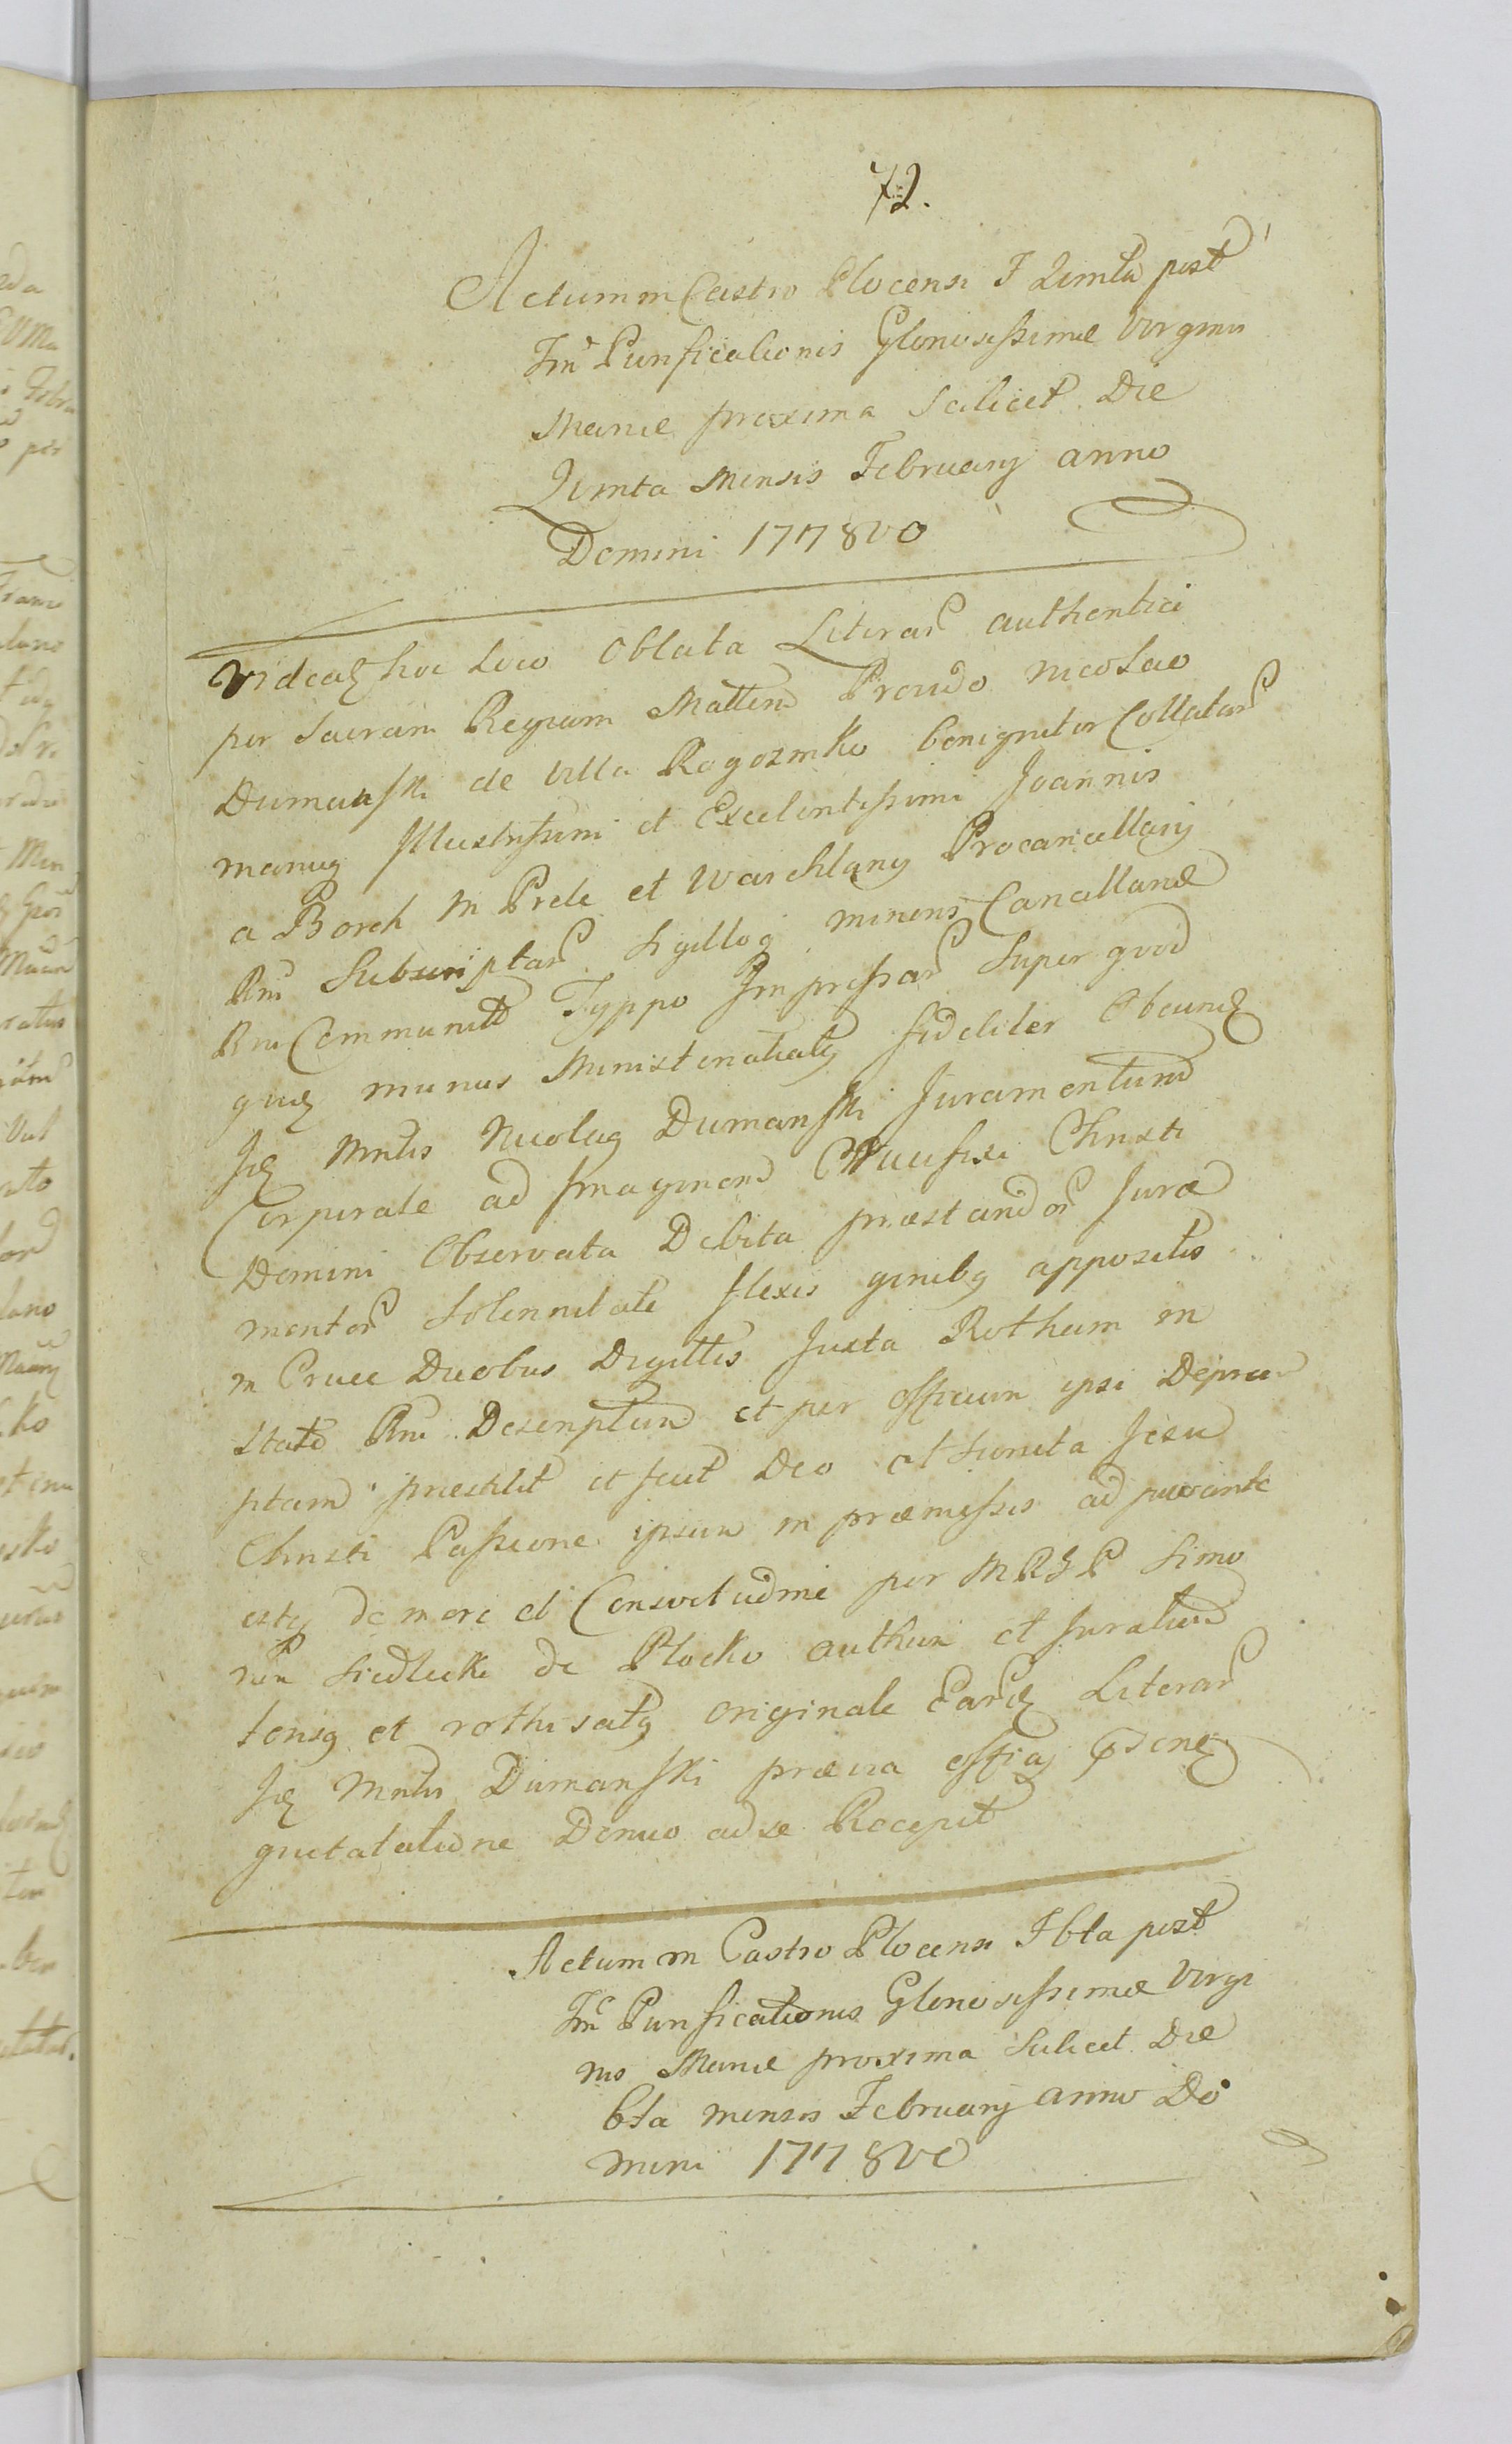 72.
Actum in Castro Plocensi F Quinta post
Fm Purificationis Gloriosissimæ Virginis
Mariæ proxima Scilicet Die
Quinta Mensis Februarij anno
Domini 1778vo
Videatz hoc Loco Oblata Literar authentici
per Sacram Regiam Mattem Provido Nicolao
Dumanski de Villa Rogozinko benigniter Collatar
manuq Illustrissimi et Excelentissimi Joannis
a Borch in Prele et Warchlany Procancellarij
Rni Subscriptar Sigilloq minoris Cancellariæ
Rni Communit Typpo Impressar Super quod
quidz munus Ministerialq fideliter Obeundz
Idz Mnlis Nicolaq Dumanski Juramentum
Corporale ad Imaginem Crucifixi Christi
Domini Observata Debita præstandor Jura
mentor Solennitate flexis genibq appositis
in Cruce Duobus Digittis Juxta Rotham in
Stato Rni Descriptum et per officium ipsi Depræ
ptam præstitit et sicut Deo et Sancta Jesu
Christi Passione ipsum in præmissis adjuvante
estq de more et Consvetudine per MRSP Simo
nem Siedlecki de Plocko authum et Juratum
tensq et rothisatq originale Eardz Literar
Idz Mnlis Dumanski prævia offij pdenz
quietatatione Denuo ad se Recepit
Actum in Castro Plocensi F 6ta post
Fm Purificationis Gloriosissimæ Virgi
nis Mariæ proxima Scilicet Die
6ta mensis Februarij anno Do
mini 1778vo